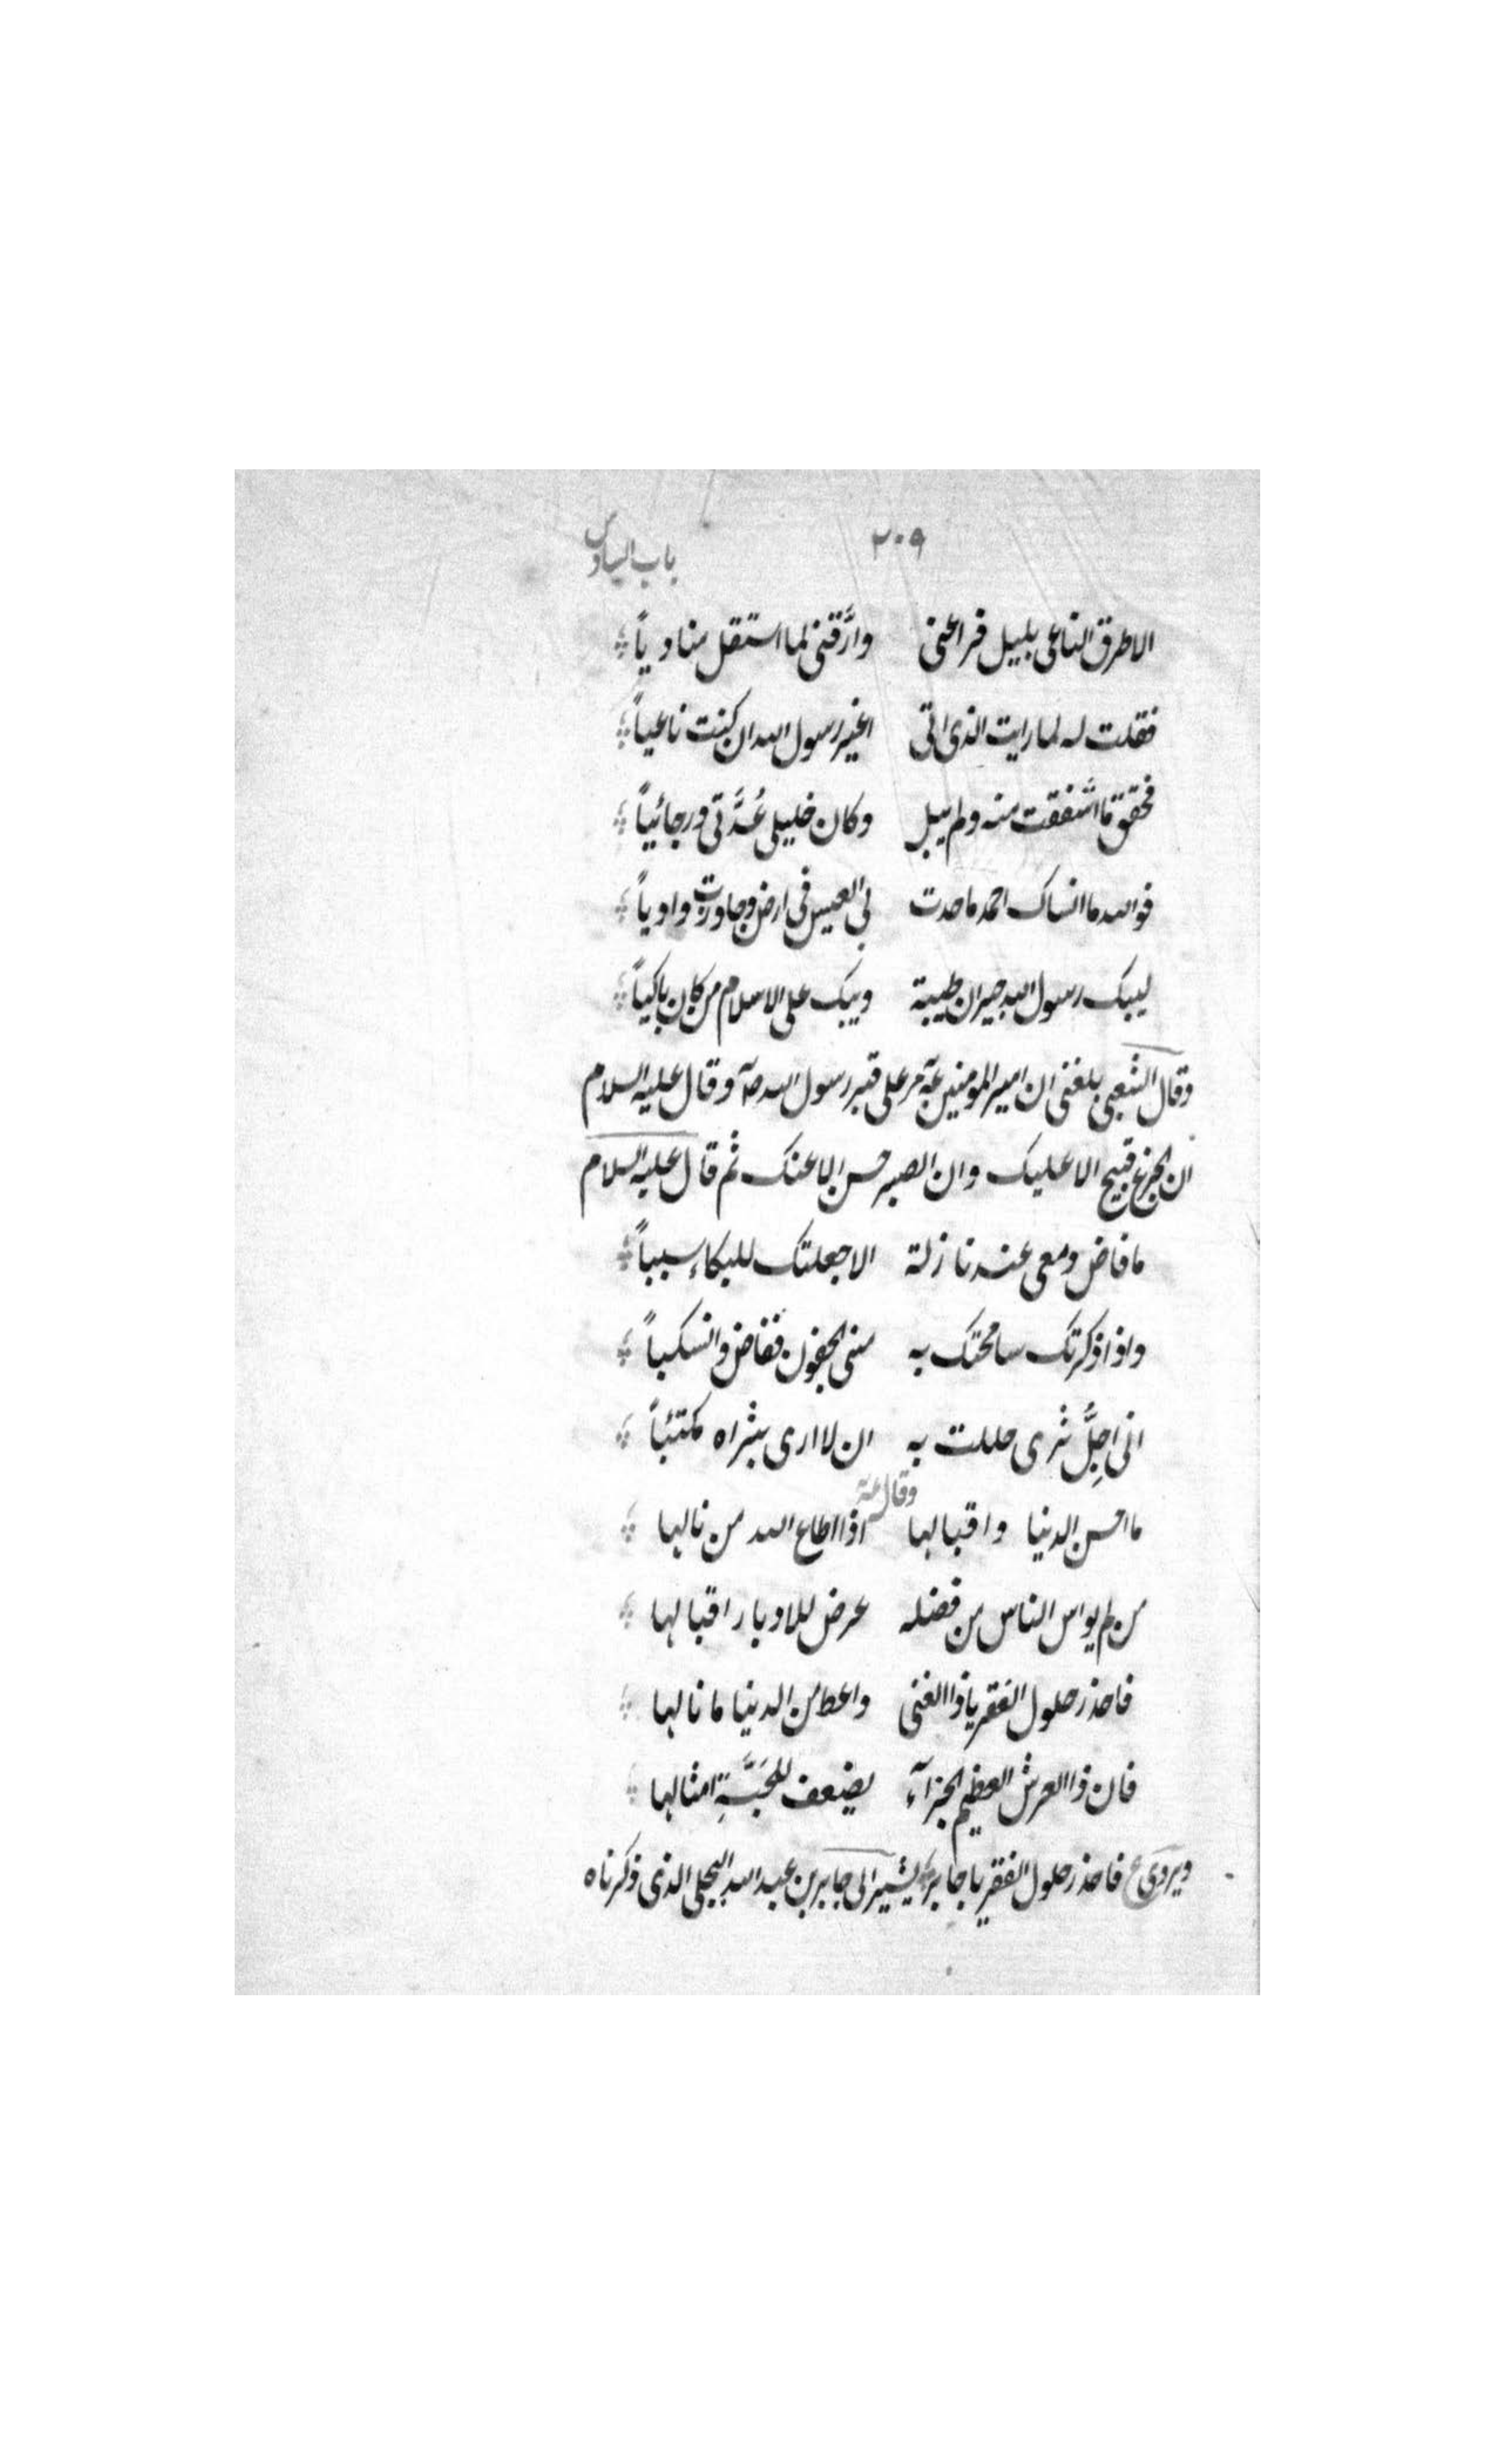 ٢٠٩
باب السادس
الا طرق الناعی بلیل فراعنی وارَّقنی لما استقل منادیاً
فقلت له لما رایت الذی اتی اغیر رسول الله ان کنت ناعیاً
فحقق ما اشفقت منه ولم یبل وکان خلیلی عُدَّتی ورجائیاً
فوالله ما انساک احمد ما حدت بی العیس فی ارض وجاوزت وادیاً
لیبک رسول الله جیران طیبة ویبک علی الاسلام من کان باکیاً
وقال الشعبی بلغنی ان امیر المومنین مر علی قبر رسول الله ص وقال علیه السلام
ان الجزع قبیح الا علیک وان الصبر حسن الا عنک ثم قال علیه السلام
ما فاض دمعی عند نازلة الا جعلتک للبکاء سبباً
واذا ذکرتک سامحتک به منی الجفون ففاض وانسکباً
انی اجِلُّ ثری حللت به ان لا اری بثراه مکتئباً
وقال ع
ما احسن الدنیا واقبالها اذا اطاع الله من نالها
من لم یواس الناس من فضله عرض للادبار اقبالها
فاحذر حلول الفقر یا ذا الغنی واعط من الدنیا ما نالها
فان ذا العرش العظیم الجزآء یضعف للحَبَّةِ امثالها
ویروی ع فاحذر حلول الفقر یا جابر یشیر الی جابر بن عبد الله البجلی الذی ذکرناه